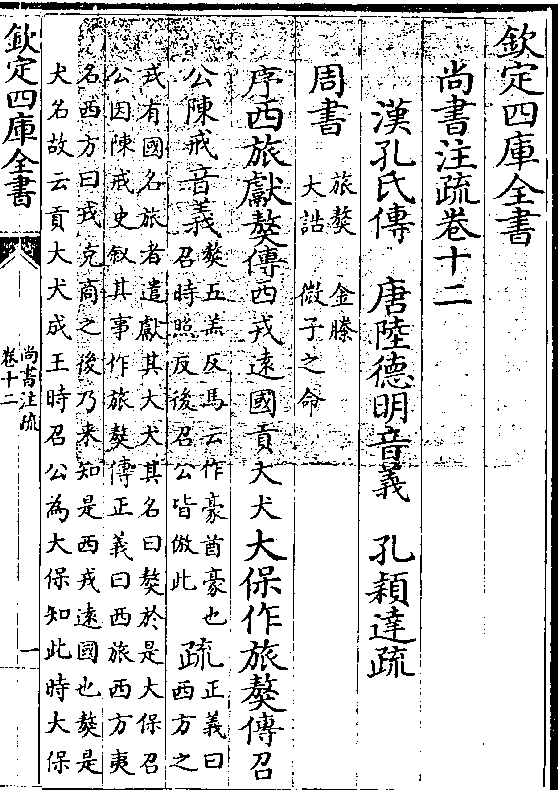 欽定四庫全書
尚書注疏卷十二
漢孔氏傳　唐陸德明音義　孔穎達疏
周書
旅獒　金縢
大誥　微子之命
序西旅獻獒傳西戎遠國貢大犬大保作旅獒傳召
公陳戒音義獒五羔反馬云作豪酋豪也
召時照反後召公皆倣此
疏正義曰
西方之
戎有國名旅者遣獻其大犬其名曰獒於是大保召
公因陳戒史叙其事作旅獒傳正義曰西旅西方夷
名西方曰戎克商之後乃来知是西戎遠國也獒是
犬名故云貢大犬成王時召公為大保知此時大保
欽定四庫全書
尚書注疏
卷十二
一